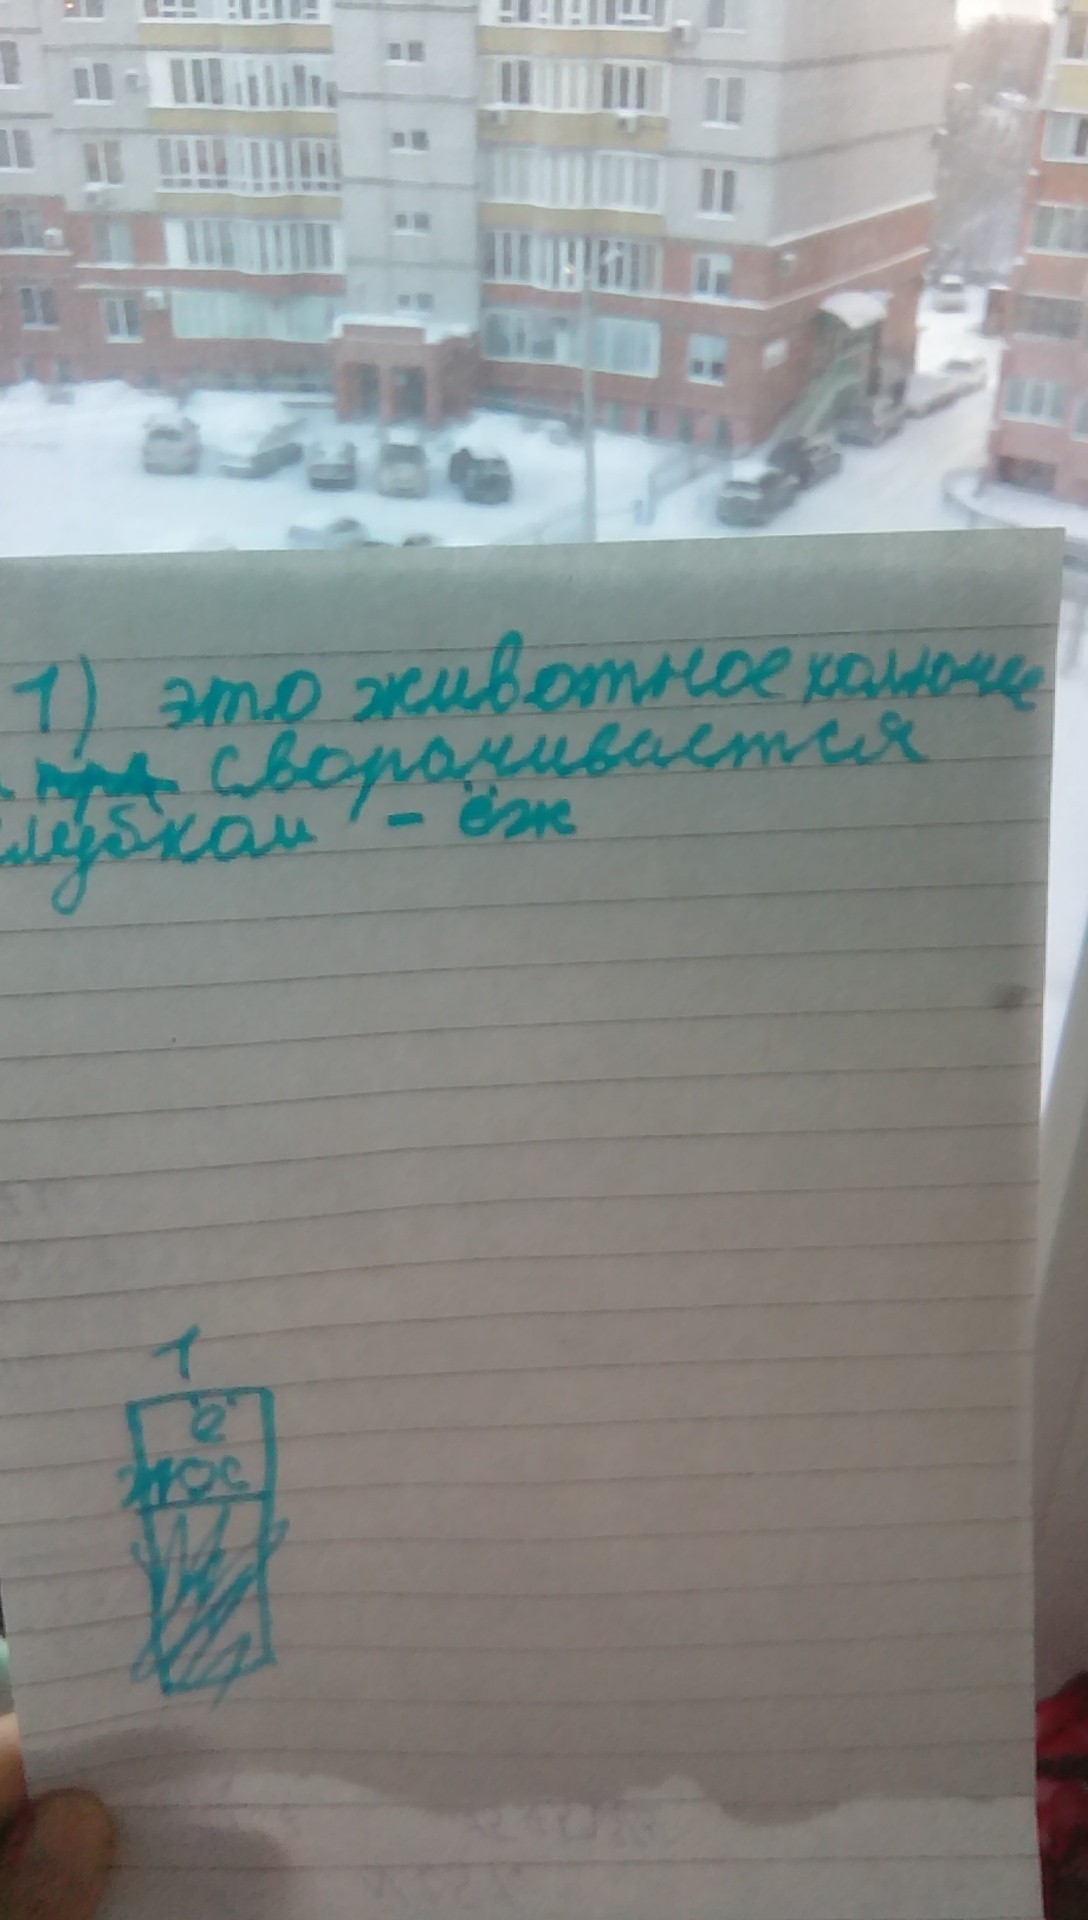 1) это животное колючее
сворачивается
клубком - ёж
1
ё
ж